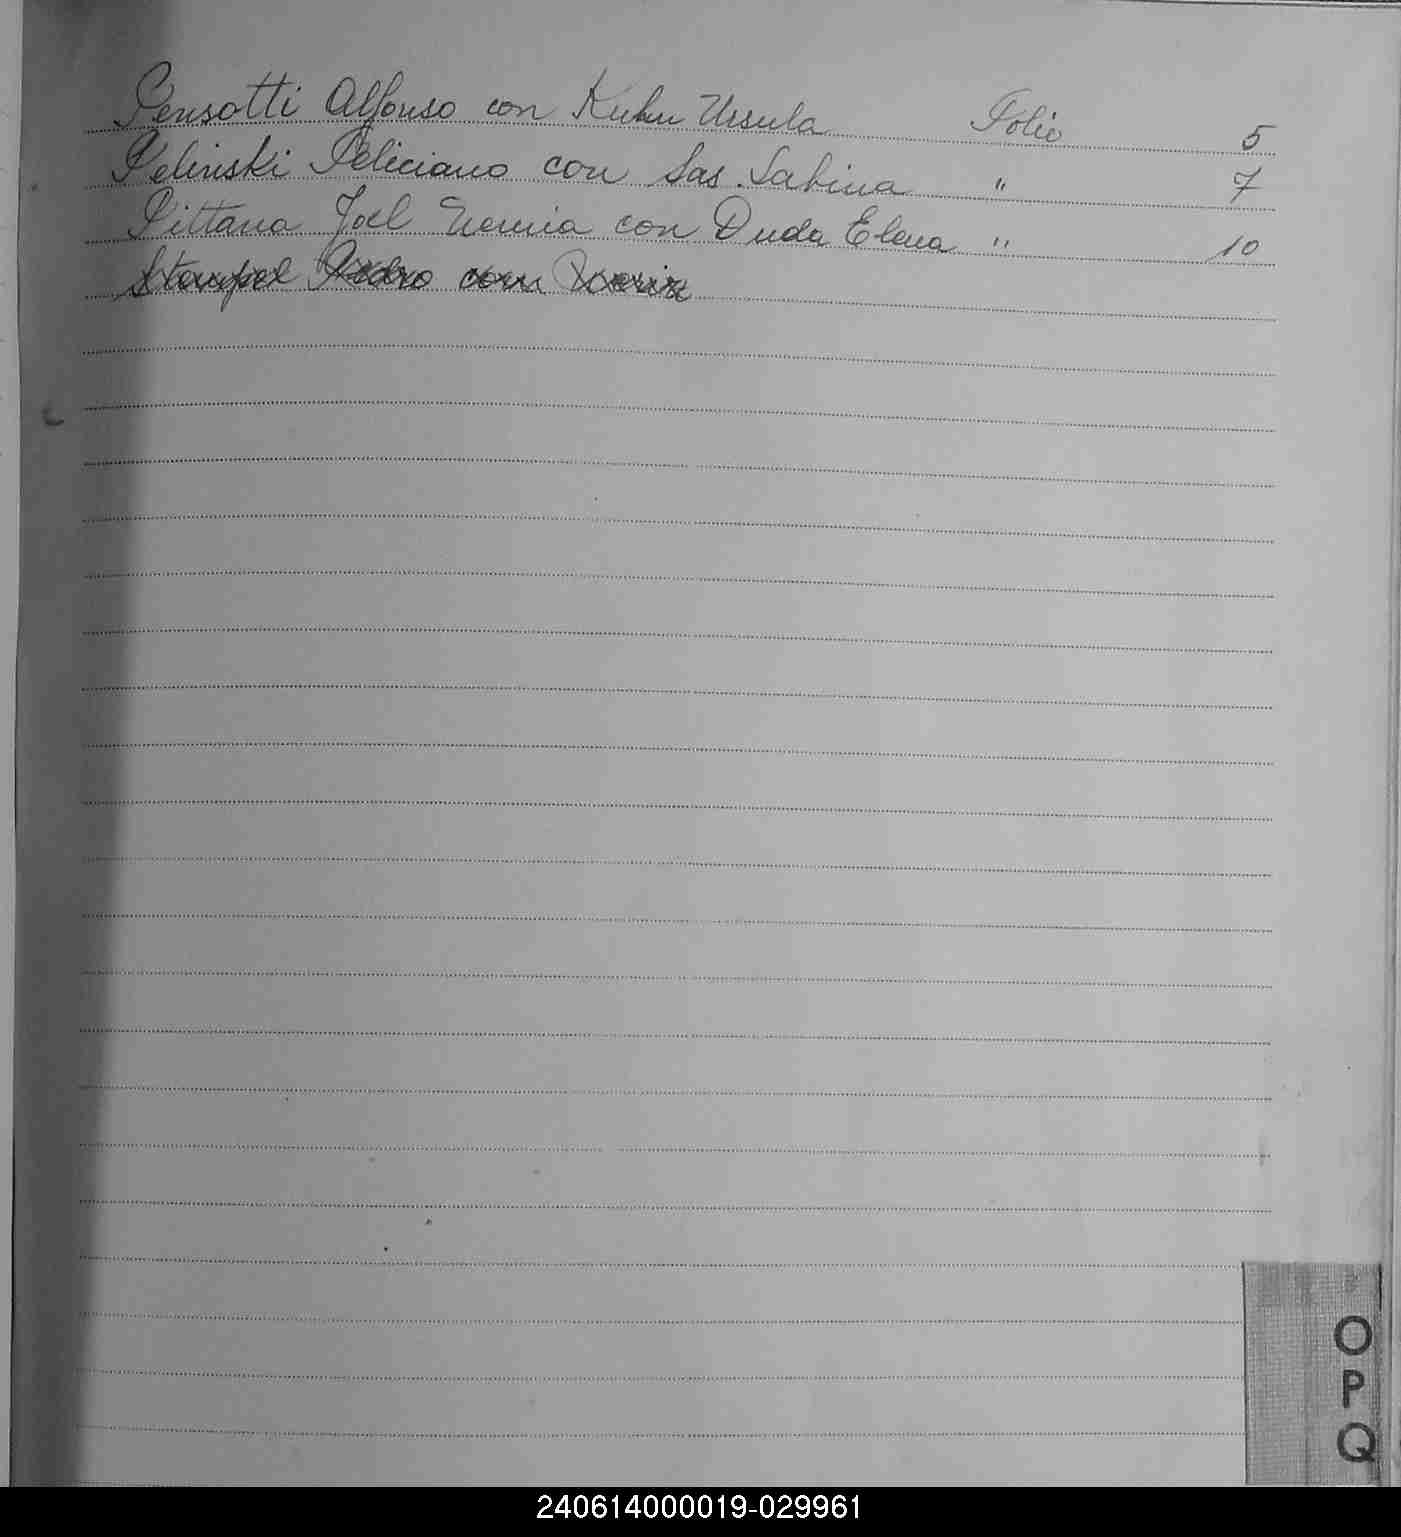 Pensotti Alfonso con Kuhn Ursula Folio 5
Pelinski Feliciano con Sas Sabina " 7
Pittana Joel Nemia con Duda Elena " 10
Stempel Pedro con
O
P
Q
240614000019-029961